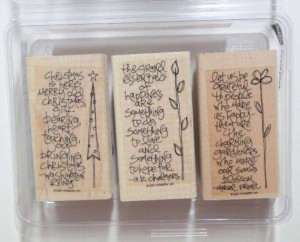 Christmas
is here
merry old
Christmas
gift
bearing
heart
touching
joy
bringing
Christmas
Washington
Irving
the grand
essentials
of
happiness
are
something
to do
something
to love
and
something
to hope for
a.k. chalmers
let us be
grateful
to people
who make
us happy
they are
the
charming
gardeners
who make
our souls
blossom
marcel proust